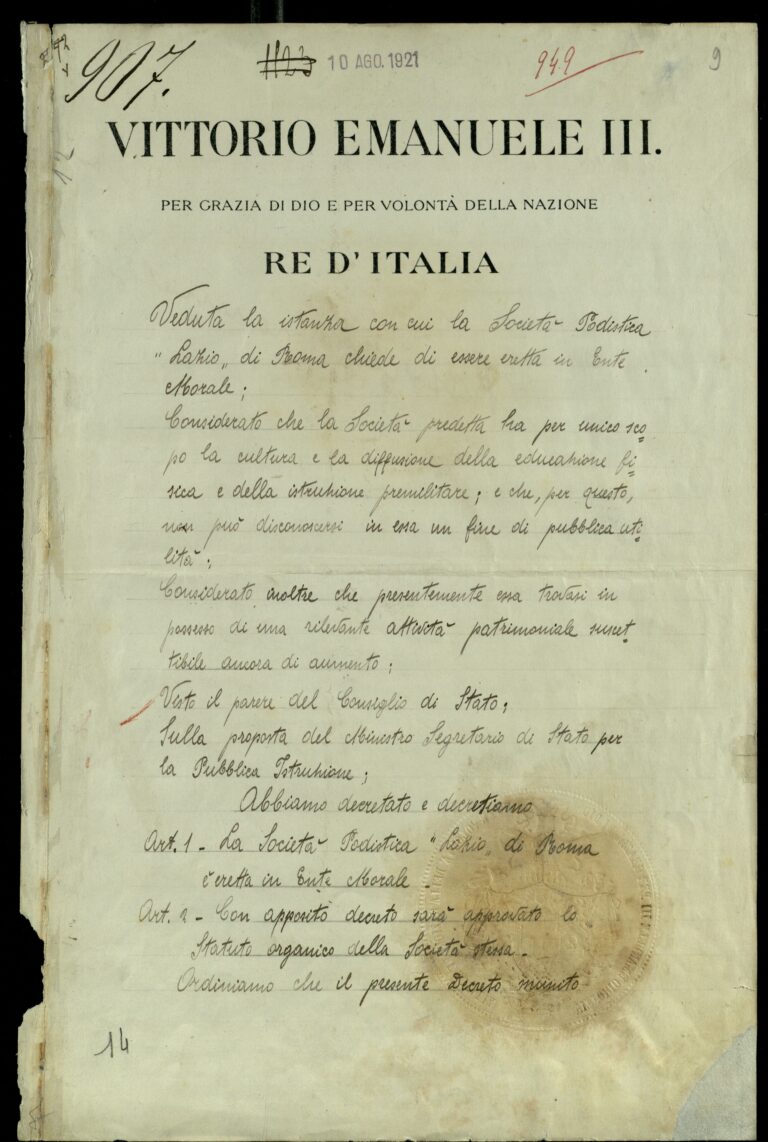 907.
1123
10 AGO. 1921
949
9
VITTORIO EMANUELE III.
PER GRAZIA DI DIO E PER VOLONTÀ DELLA NAZIONE
RE D'ITALIA
Veduta la istanza con cui la Società Podistica
"Lazio„ di Roma chiede di essere eretta in Ente
Morale;
Considerato che la Società predetta ha per unico sco=
po la cultura e la diffusione della educazione fi=
sica e della istruzione premilitare; e che, per questo,
non può disconoscersi in essa un fine di pubblica uti=
lità;
Considerato inoltre che presentemente essa trovasi in
possesso di una rilevante attività patrimoniale suscet=
tibile ancora di aumento;
Visto il parere del Consiglio di Stato;
Sulla proposta del Ministro Segretario di Stato per
la Pubblica Istruzione;
Abbiamo decretato e decretiamo
Art. 1 - La Società Podistica "Lazio„ di Roma
è eretta in Ente Morale -
Art. 2 - Con apposito decreto sarà approvato lo
Statuto organico della Società stessa -
Ordiniamo che il presente Decreto munito
14